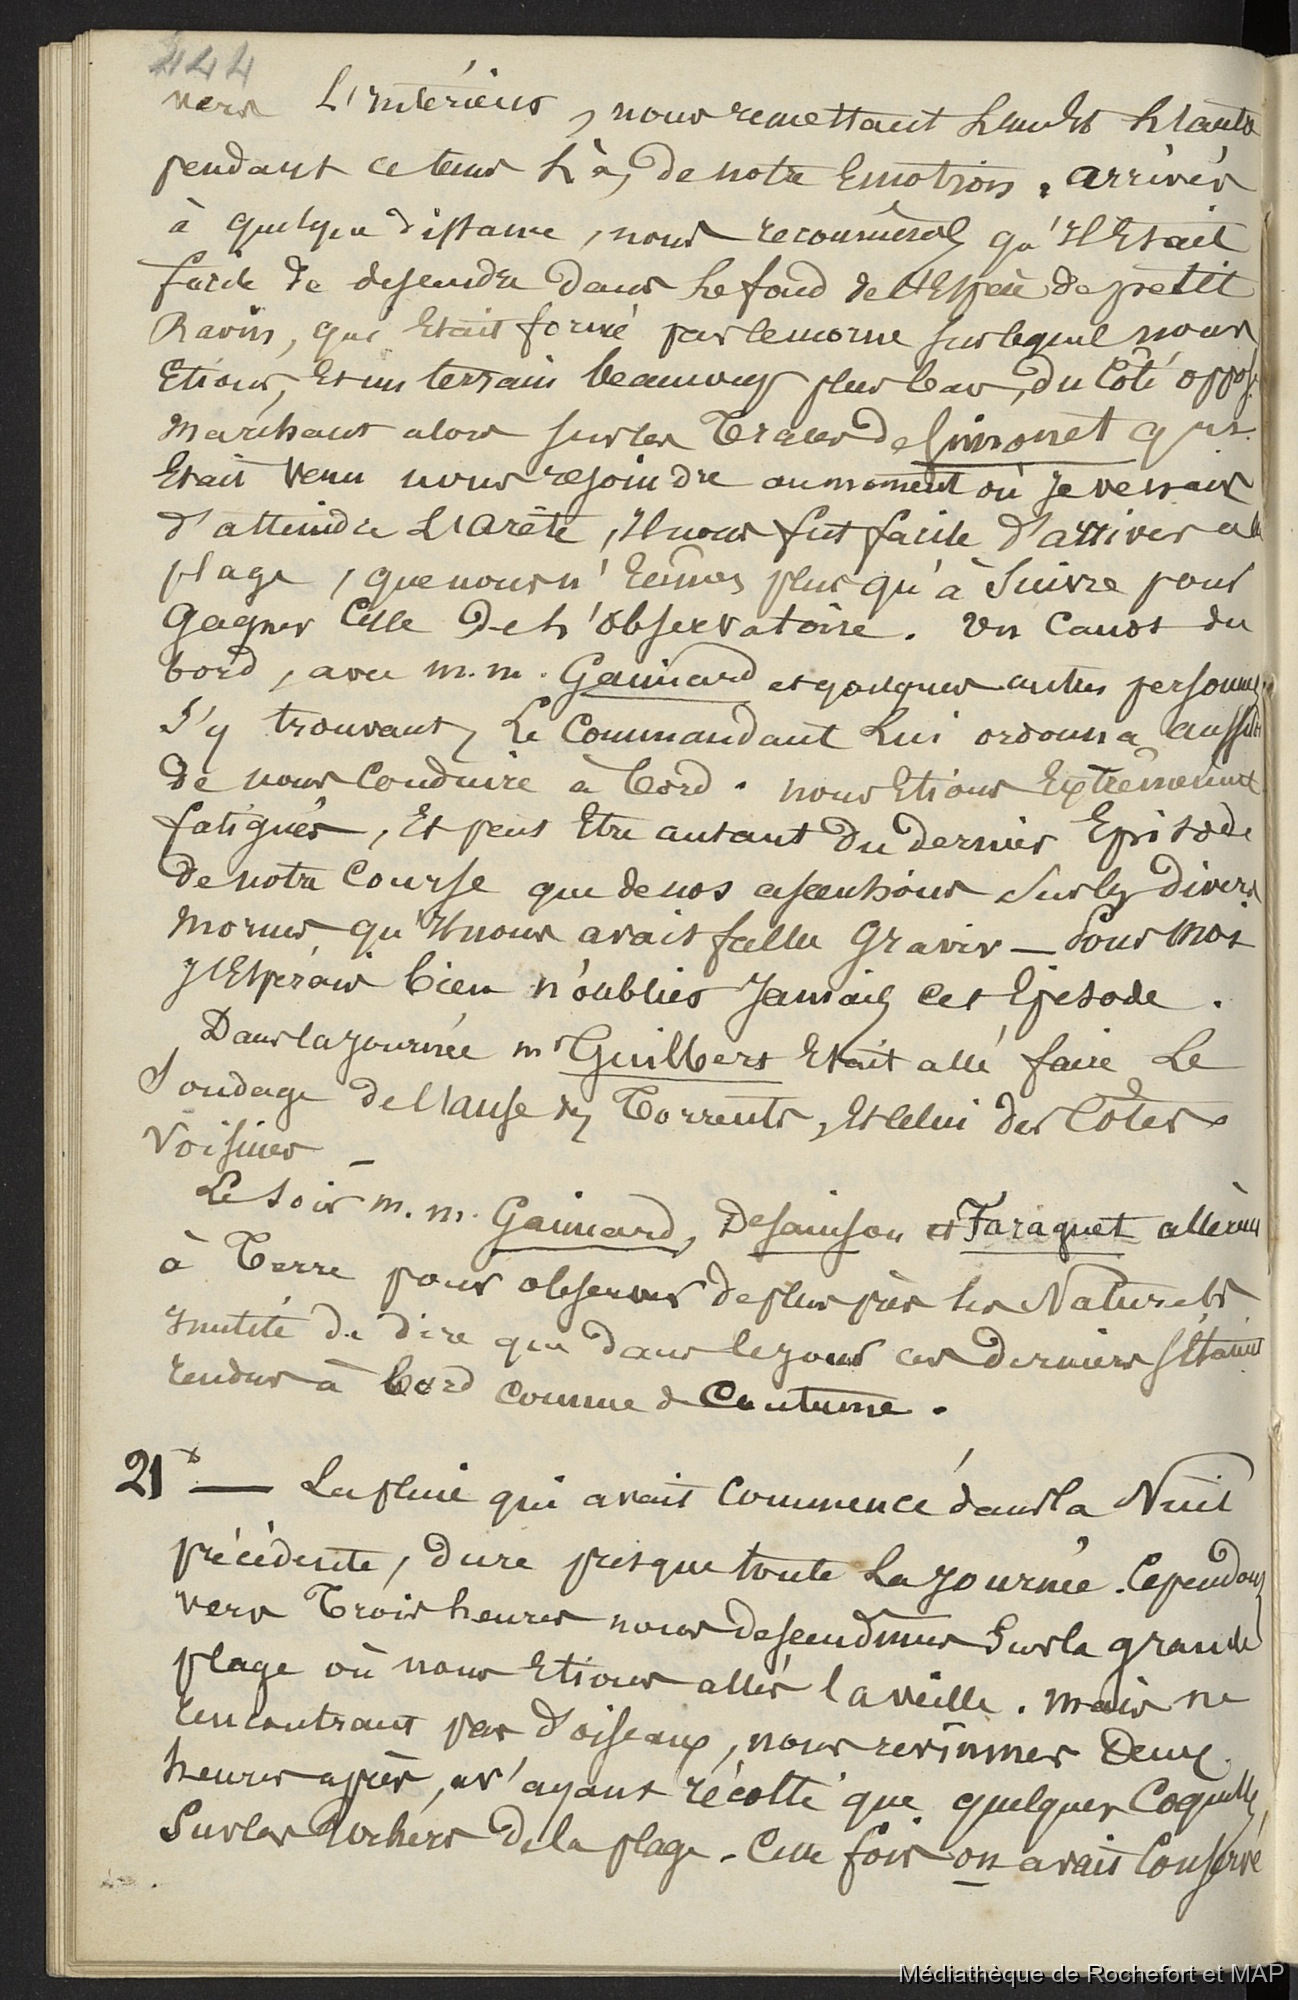 444
vers L'intérieur, nous remettant
pendant ce tems là, de notre Emotion. arrivés
à quelque distance, nous reconnumes qu'Il Etait
facile de descendre dans le fond de l'Espèce de petit
Ravin, qui Etait formé par le morne sur lequel nous
Etions, Et un terrain beaucoup plus bas, du Côté opposé.
Marchant alors sur les Traces de Simonet qui
Etait Venu nous rejoindre au moment où Je venais
d'atteindre L'arête, Il nous fut facile d'arriver a la
plage, que nous n'Eumes plus qu'à Suivre pour
Gagner Celle De L'observatoire. Un Canot du
bord, avec m.m. Gaimard et quelques autres personnes
s'y trouvant, Le Commandant Lui ordonna aussitôt
de nous Conduire à bord. nous Etions Extrêmement
fatigués, Et peut Etre autant du dernier Episode
de notre Course que de nos ascenhions Sur les divers
Mornes qu'Il nous avait fallu Gravir — Pour Moi
J'Espérais bien n'oublier Jamais cet Episode.
Dans la journée mr Guilbert Etait allé faire Le
Sondage de l'anse des Torrents, Et Celui des Côtes
Voisines —
Le Soir m.m. Gaimard, Desainson et Faraguet allèrent
à Terre pour observer de plus près les Naturels
Inutile de dire que dans le jour ces derniers s'Etaient
rendus à bord comme de Coutume.
21x — La pluie qui avait Commencé dans la Nuit
précédente, dure presque toute La Journée. Cependant
vers Trois heures nous descendimes Sur la grande
plage où nous Etions allés la veille. Mais ne
rencontrant pas d'oiseaux, nous revinmes Deux
heures après, n'ayant récolté que quelques Coquilles
Sur les Rochers de la plage. Cette fois on avait Conservé
Médiathèque de Rochefort et MAP